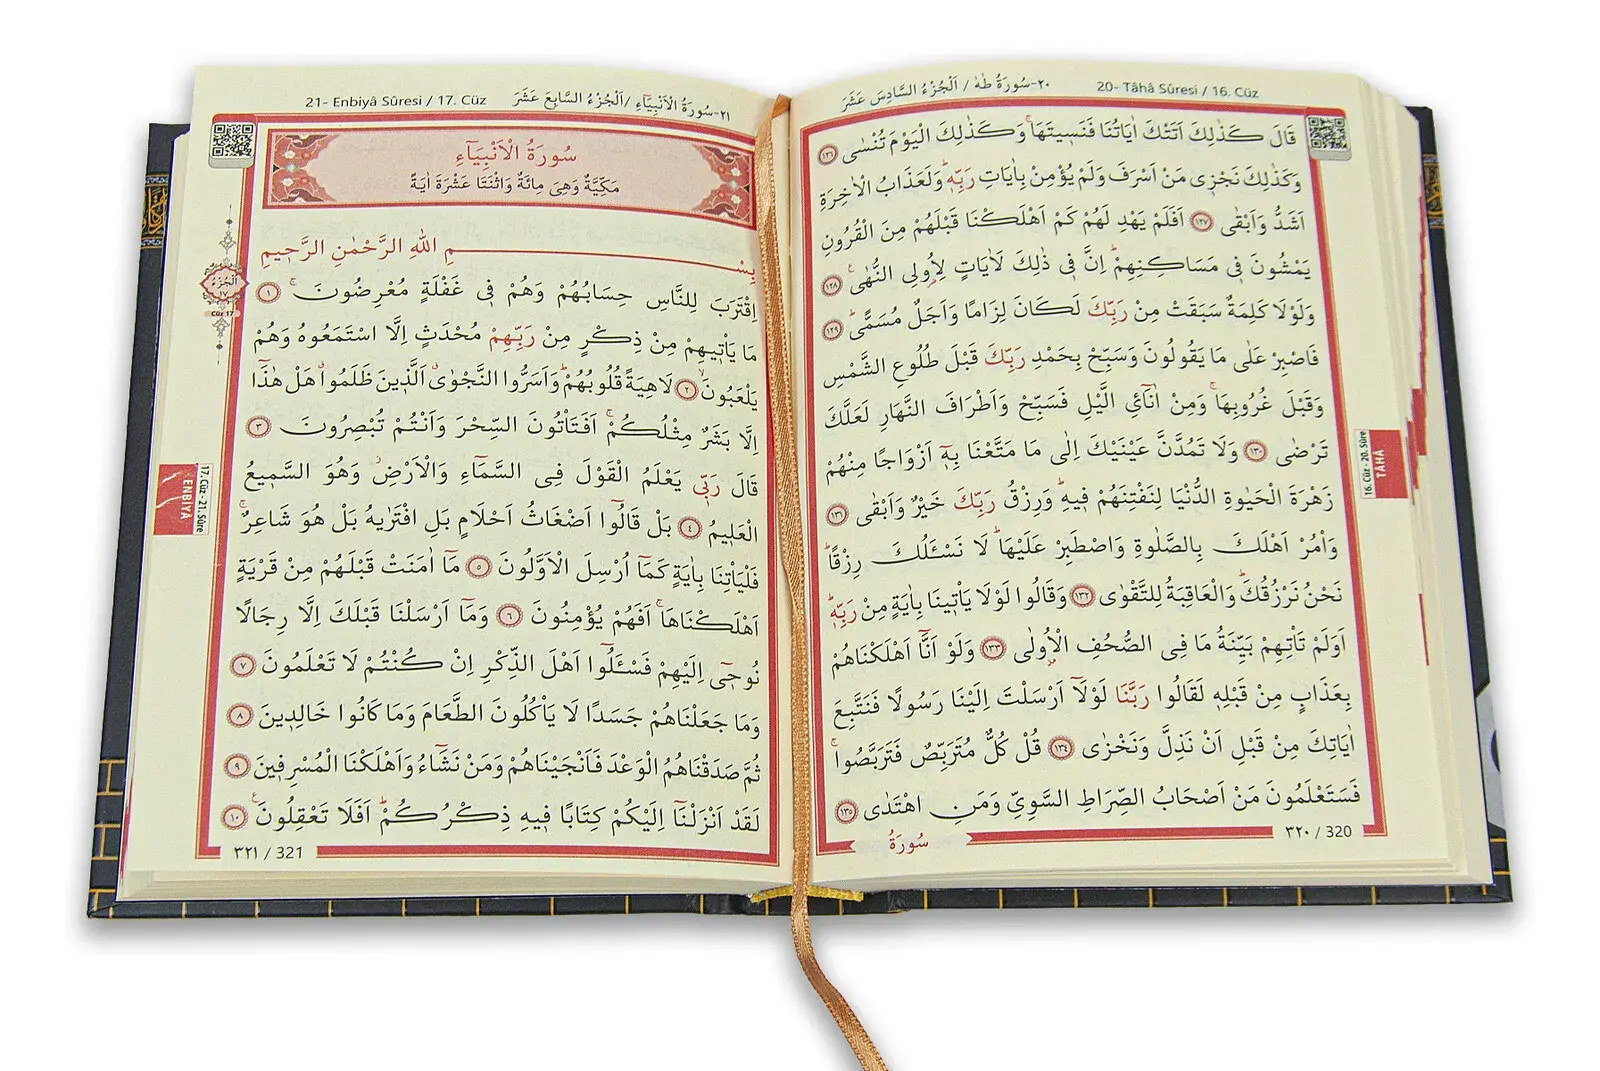 ٢٠-سُورَةُ طٰهٰ / اَلْجُزْءُ السَّادِسَ عَشَرَ
20- Tâhâ Sûresi / 16. Cüz
قَالَ كَذٰلِكَ اَتَتْكَ اٰيَاتُنَا فَنَسِيتَهَاۚ وَكَذٰلِكَ الْيَوْمَ تُنْسٰى ١٢٦
وَكَذٰلِكَ نَجْزِي مَنْ اَسْرَفَ وَلَمْ يُؤْمِنْ بِاٰيَاتِ رَبِّهٖۜ وَلَعَذَابُ الْاٰخِرَةِ
اَشَدُّ وَاَبْقٰى ١٢٧ اَفَلَمْ يَهْدِ لَهُمْ كَمْ اَهْلَكْنَا قَبْلَهُمْ مِنَ الْقُرُونِ
يَمْشُونَ فٖي مَسَاكِنِهِمْۜ اِنَّ فٖي ذٰلِكَ لَاٰيَاتٍ لِاُولِي النُّهٰىۚ ١٢٨
وَلَوْلَا كَلِمَةٌ سَبَقَتْ مِنْ رَبِّكَ لَكَانَ لِزَامًا وَاَجَلٌ مُسَمًّىۜ ١٢٩
فَاصْبِرْ عَلٰى مَا يَقُولُونَ وَسَبِّحْ بِحَمْدِ رَبِّكَ قَبْلَ طُلُوعِ الشَّمْسِ
وَقَبْلَ غُرُوبِهَاۚ وَمِنْ اٰنَآئِ الَّيْلِ فَسَبِّحْ وَاَطْرَافَ النَّهَارِ لَعَلَّكَ
تَرْضٰى ١٣٠ وَلَا تَمُدَّنَّ عَيْنَيْكَ اِلٰى مَا مَتَّعْنَا بِهٖٓ اَزْوَاجًا مِنْهُمْ
زَهْرَةَ الْحَيٰوةِ الدُّنْيَا لِنَفْتِنَهُمْ فٖيهِۜ وَرِزْقُ رَبِّكَ خَيْرٌ وَاَبْقٰى ١٣١
وَأْمُرْ اَهْلَكَ بِالصَّلٰوةِ وَاصْطَبِرْ عَلَيْهَاۜ لَا نَسْـَٔلُكَ رِزْقًاۜ
نَحْنُ نَرْزُقُكَۜ وَالْعَاقِبَةُ لِلتَّقْوٰى ١٣٢ وَقَالُوا لَوْلَا يَأْتٖينَا بِاٰيَةٍ مِنْ رَبِّهٖۜ
اَوَلَمْ تَأْتِهِمْ بَيِّنَةُ مَا فِي الصُّحُفِ الْاُولٰى ١٣٣ وَلَوْ اَنَّٓا اَهْلَكْنَاهُمْ
بِعَذَابٍ مِنْ قَبْلِهٖ لَقَالُوا رَبَّنَا لَوْلَٓا اَرْسَلْتَ اِلَيْنَا رَسُولًا فَنَتَّبِعَ
اٰيَاتِكَ مِنْ قَبْلِ اَنْ نَذِلَّ وَنَخْزٰى ١٣٤ قُلْ كُلٌّ مُتَرَبِّصٌ فَتَرَبَّصُواۚ
فَسَتَعْلَمُونَ مَنْ اَصْحَابُ الصِّرَاطِ السَّوِيِّ وَمَنِ اهْتَدٰى ١٣٥
٣٢٠ / 320
سُورَةُ
16. Cüz - 20. Sûre
TÂHÂ
٢١-سُورَةُ الْاَنْبِيَٓاءِ /اَلْجُزْءُ السَّابِعَ عَشَرَ
21- Enbiyâ Sûresi / 17. Cüz
سُورَةُ الْاَنْبِيَٓاءِ
مَكِّيَّةٌ وَهِيَ مِائَةٌ وَاثْنَتَا عَشْرَةَ اٰيَةً
بِسْمِ اللّٰهِ الرَّحْمٰنِ الرَّحٖيمِ
اِقْتَرَبَ لِلنَّاسِ حِسَابُهُمْ وَهُمْ فٖي غَفْلَةٍ مُعْرِضُونَۚ ١
مَا يَأْتٖيهِمْ مِنْ ذِكْرٍ مِنْ رَبِّهِمْ مُحْدَثٍ اِلَّا اسْتَمَعُوهُ وَهُمْ
يَلْعَبُونَۙ ٢ لَاهِيَةً قُلُوبُهُمْۜ وَاَسَرُّوا النَّجْوٰىۗ اَلَّذٖينَ ظَلَمُواۗ هَلْ هٰذَٓا
اِلَّا بَشَرٌ مِثْلُكُمْۚ اَفَتَأْتُونَ السِّحْرَ وَاَنْتُمْ تُبْصِرُونَ ٣
قَالَ رَبّٖي يَعْلَمُ الْقَوْلَ فِي السَّمَٓاءِ وَالْاَرْضِۘ وَهُوَ السَّمٖيعُ
الْعَلٖيمُ ٤ بَلْ قَالُٓوا اَضْغَاثُ اَحْلَامٍ بَلِ افْتَرٰيهُ بَلْ هُوَ شَاعِرٌۚ
فَلْيَأْتِنَا بِاٰيَةٍ كَمَٓا اُرْسِلَ الْاَوَّلُونَ ٥ مَٓا اٰمَنَتْ قَبْلَهُمْ مِنْ قَرْيَةٍ
اَهْلَكْنَاهَاۚ اَفَهُمْ يُؤْمِنُونَ ٦ وَمَٓا اَرْسَلْنَا قَبْلَكَ اِلَّا رِجَالًا
نُوحٖٓي اِلَيْهِمْ فَسْـَٔلُٓوا اَهْلَ الذِّكْرِ اِنْ كُنْتُمْ لَا تَعْلَمُونَ ٧
وَمَا جَعَلْنَاهُمْ جَسَدًا لَا يَأْكُلُونَ الطَّعَامَ وَمَا كَانُوا خَالِدٖينَ ٨
ثُمَّ صَدَقْنَاهُمُ الْوَعْدَ فَاَنْجَيْنَاهُمْ وَمَنْ نَشَٓاءُ وَاَهْلَكْنَا الْمُسْرِفٖينَ ٩
لَقَدْ اَنْزَلْنَٓا اِلَيْكُمْ كِتَابًا فٖيهِ ذِكْرُكُمْۜ اَفَلَا تَعْقِلُونَ۟ ١٠
٣٢١ / 321
اَلْجُزْءُ
١٧
Cüz 17
17. Cüz - 21. Sûre
ENBİYÂ